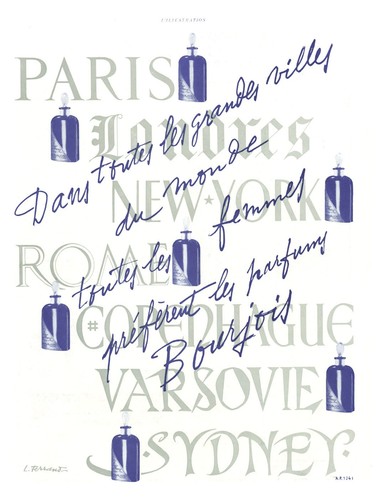 L'ILLUSTRATION
PARIS
Londres
NEW★YORK
ROME
#COPENHAGUE
VARSOVIE
·SYDNEY·
Dans toutes les grandes villes
du monde
toutes les femmes
préfèrent les parfums
Bourjois